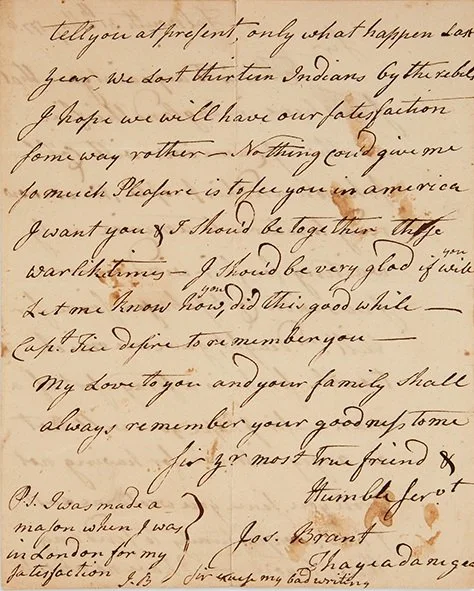 tell you at present, only what happen Last
Year, we Lost thirteen Indians by the rebels
I hope we will have our satesfaction
some way rother — Nothing coud give me
so much Pleasure is to see you in america
I want you & I shoud be together these
warlik times — I shoud be very glad if you will
Let me know how you did this good while —
Capt. Tice desire to remember you —
My Love to you and your family shall
always remember your goodness to me
Sir yr most True friend &
Humble Servt
Jos. Brant
Thayeadanegea
P.S. I was made a
mason when I was
in London for my
satesfaction J.B
Sir excuse my bad writing